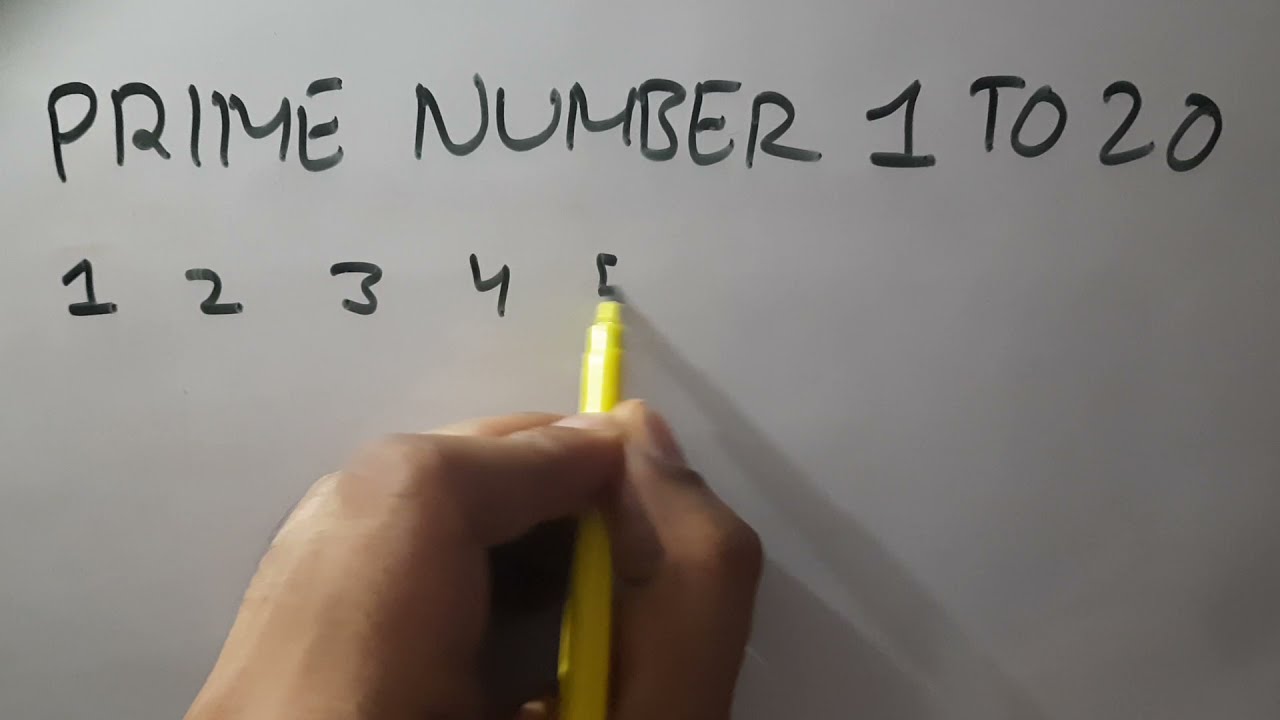 PRIME NUMBER 1 TO 20
1 2 3 4 5